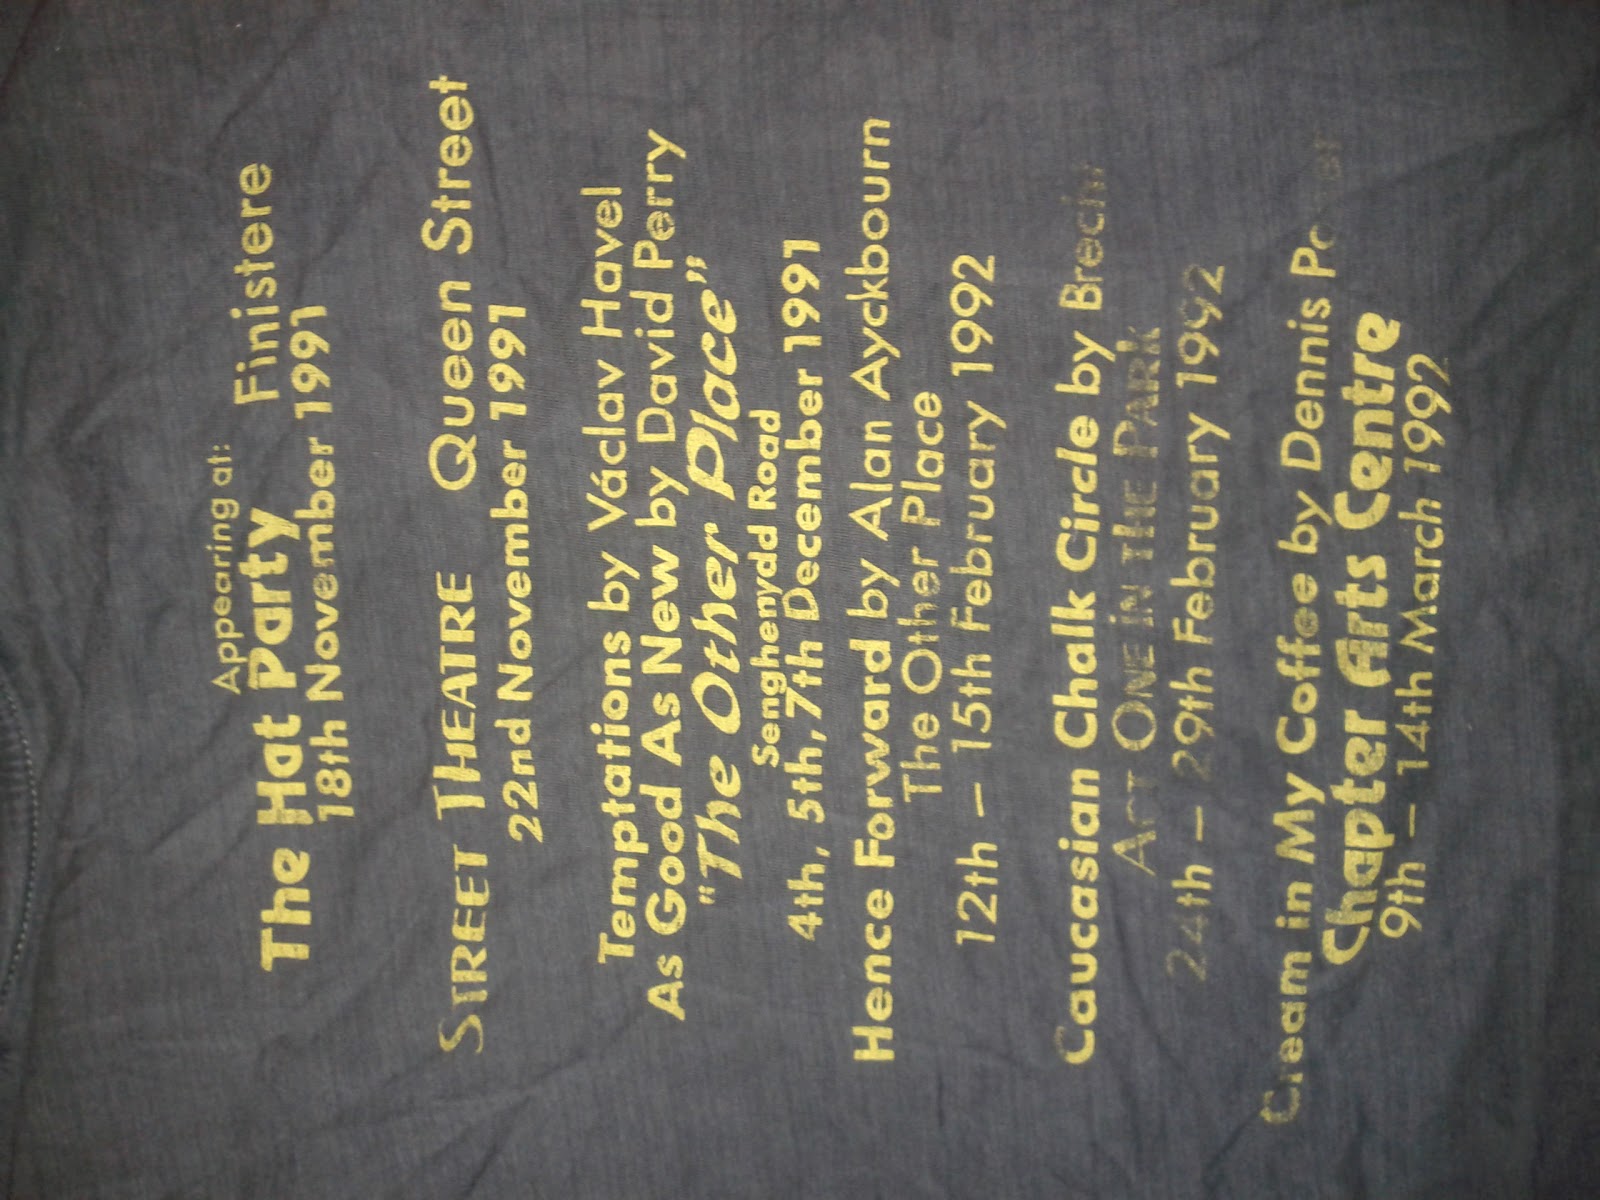 Appearing at:
The Hat Party Finistere
18th November 1991
STREET THEATRE Queen Street
22nd November 1991
Temptations by Václav Havel
As Good As New by David Perry
"The Other Place"
Senghenydd Road
4th, 5th, 7th December 1991
Hence Forward by Alan Ayckbourn
The Other Place
12th – 15th February 1992
Caucasian Chalk Circle by Brecht
ACT ONE IN THE PARK
24th – 29th February 1992
Cream in My Coffee by Dennis
Chapter Arts Centre
9th – 14th March 1992